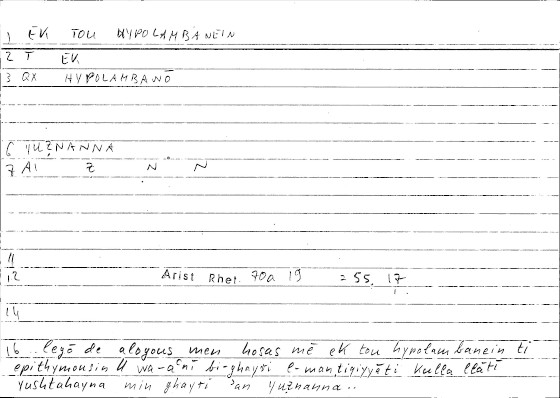 1 ĒK TOU HYPOLAMBANEIN
2 T ĒK
3 QX HYPOLAMBANŌ
6 YUẒNANNA
7 AI Ẓ N N
11
12 Arist Rhet. 70a 19 = 55, 17
14
16 legō de alogous men hosas mē ek tou hypolambanein ti
epithymousin // wa-aʿnī bi-ghayri l-mantiqiyyāti kulla llātī
yushtahayna min ghayri ʾan yuẓnanna..